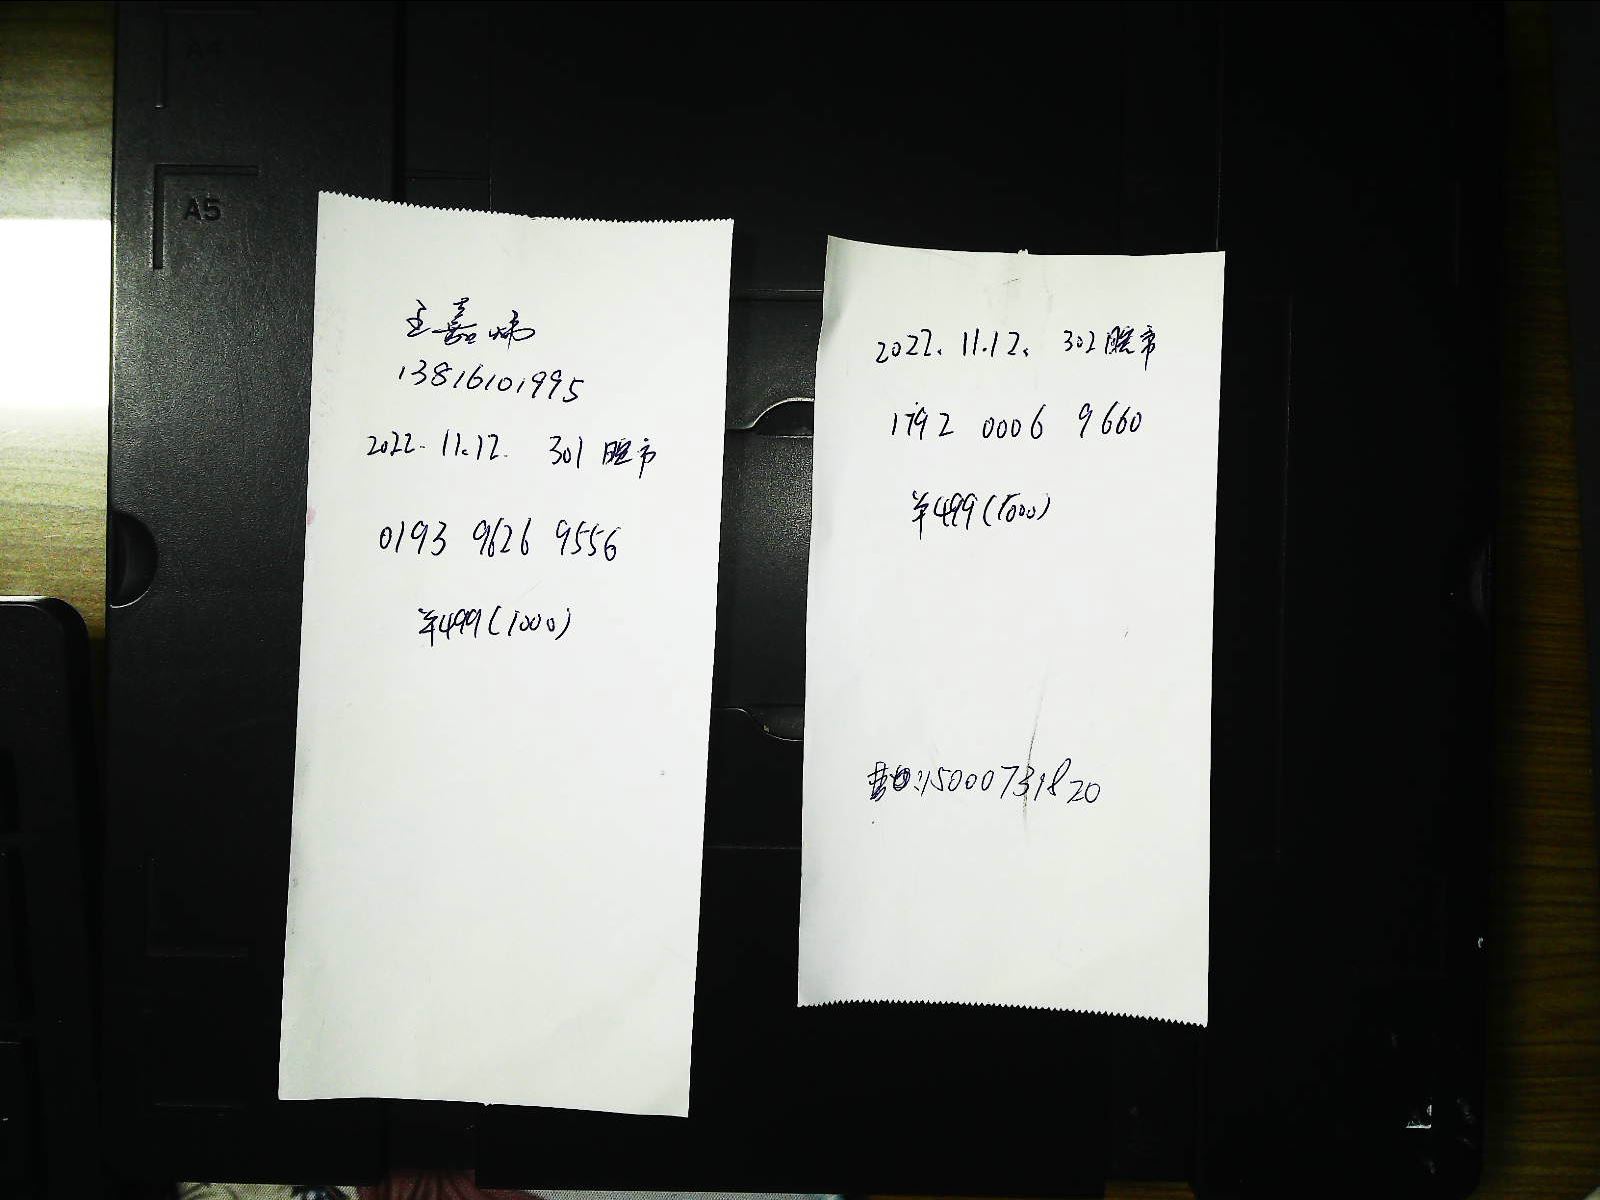 A4
A5
王嘉
13816101995
2022. 11.12. 301 腔市
0193 9626 9556
¥499(1000)
2022. 11.12. 302 腔市
1792 0006 9660
¥499(1000)
:15000731820